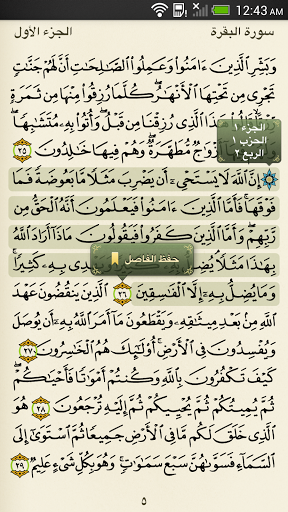 12:43 AM
سورة البقرة
الجزء الأول
وَبَشِّرِ الَّذِينَ ءَامَنُوا وَعَمِلُوا الصَّالِحَاتِ أَنَّ لَهُمْ جَنَّاتٍ
تَجْرِي مِن تَحْتِهَا الْأَنْهَارُ كُلَّمَا رُزِقُوا مِنْهَا مِن ثَمَرَةٍ
الَّذِي رُزِقْنَا مِن قَبْلُ وَأُتُوا بِهِ مُتَشَابِهًا
الجزء ١
الحزب ١
الربع ٢
مُّطَهَّرَةٌ وَهُمْ فِيهَا خَالِدُونَ ٢٥
إِنَّ اللَّهَ لَا يَسْتَحْيِي أَن يَضْرِبَ مَثَلًا مَّا بَعُوضَةً فَمَا
فَوْقَهَا فَأَمَّا الَّذِينَ ءَامَنُوا فَيَعْلَمُونَ أَنَّهُ الْحَقُّ مِن
رَّبِّهِمْ وَأَمَّا الَّذِينَ كَفَرُوا فَيَقُولُونَ مَاذَا أَرَادَ اللَّهُ
بِهَٰذَا مَثَلًا يُضِلُّ بِهِ كَثِيرًا
حفظ الفاصل
وَمَا يُضِلُّ بِهِ إِلَّا الْفَاسِقِينَ ٢٦ الَّذِينَ يَنقُضُونَ عَهْدَ
اللَّهِ مِن بَعْدِ مِيثَاقِهِ وَيَقْطَعُونَ مَا أَمَرَ اللَّهُ بِهِ أَن يُوصَلَ
وَيُفْسِدُونَ فِي الْأَرْضِ أُولَٰئِكَ هُمُ الْخَاسِرُونَ ٢٧
كَيْفَ تَكْفُرُونَ بِاللَّهِ وَكُنتُمْ أَمْوَاتًا فَأَحْيَاكُمْ
ثُمَّ يُمِيتُكُمْ ثُمَّ يُحْيِيكُمْ ثُمَّ إِلَيْهِ تُرْجَعُونَ ٢٨ هُوَ
الَّذِي خَلَقَ لَكُم مَّا فِي الْأَرْضِ جَمِيعًا ثُمَّ اسْتَوَىٰ إِلَى
السَّمَاءِ فَسَوَّاهُنَّ سَبْعَ سَمَاوَاتٍ وَهُوَ بِكُلِّ شَيْءٍ عَلِيمٌ ٢٩
٥